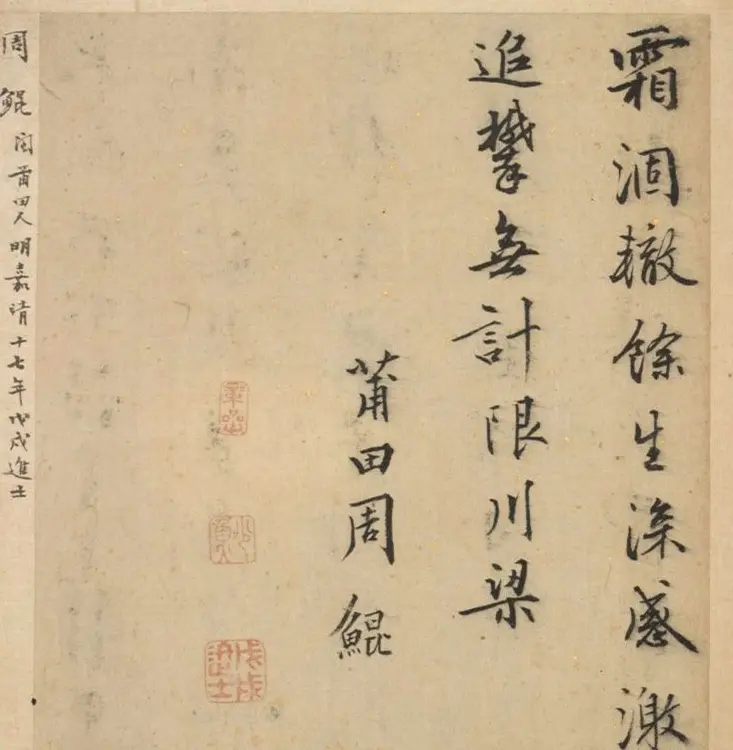 霜涸轍餘生深感激
追攀無計限川梁
莆田周鯤
戊戌進士
周鯤 閩莆田人明嘉靖十七年戊戌進士